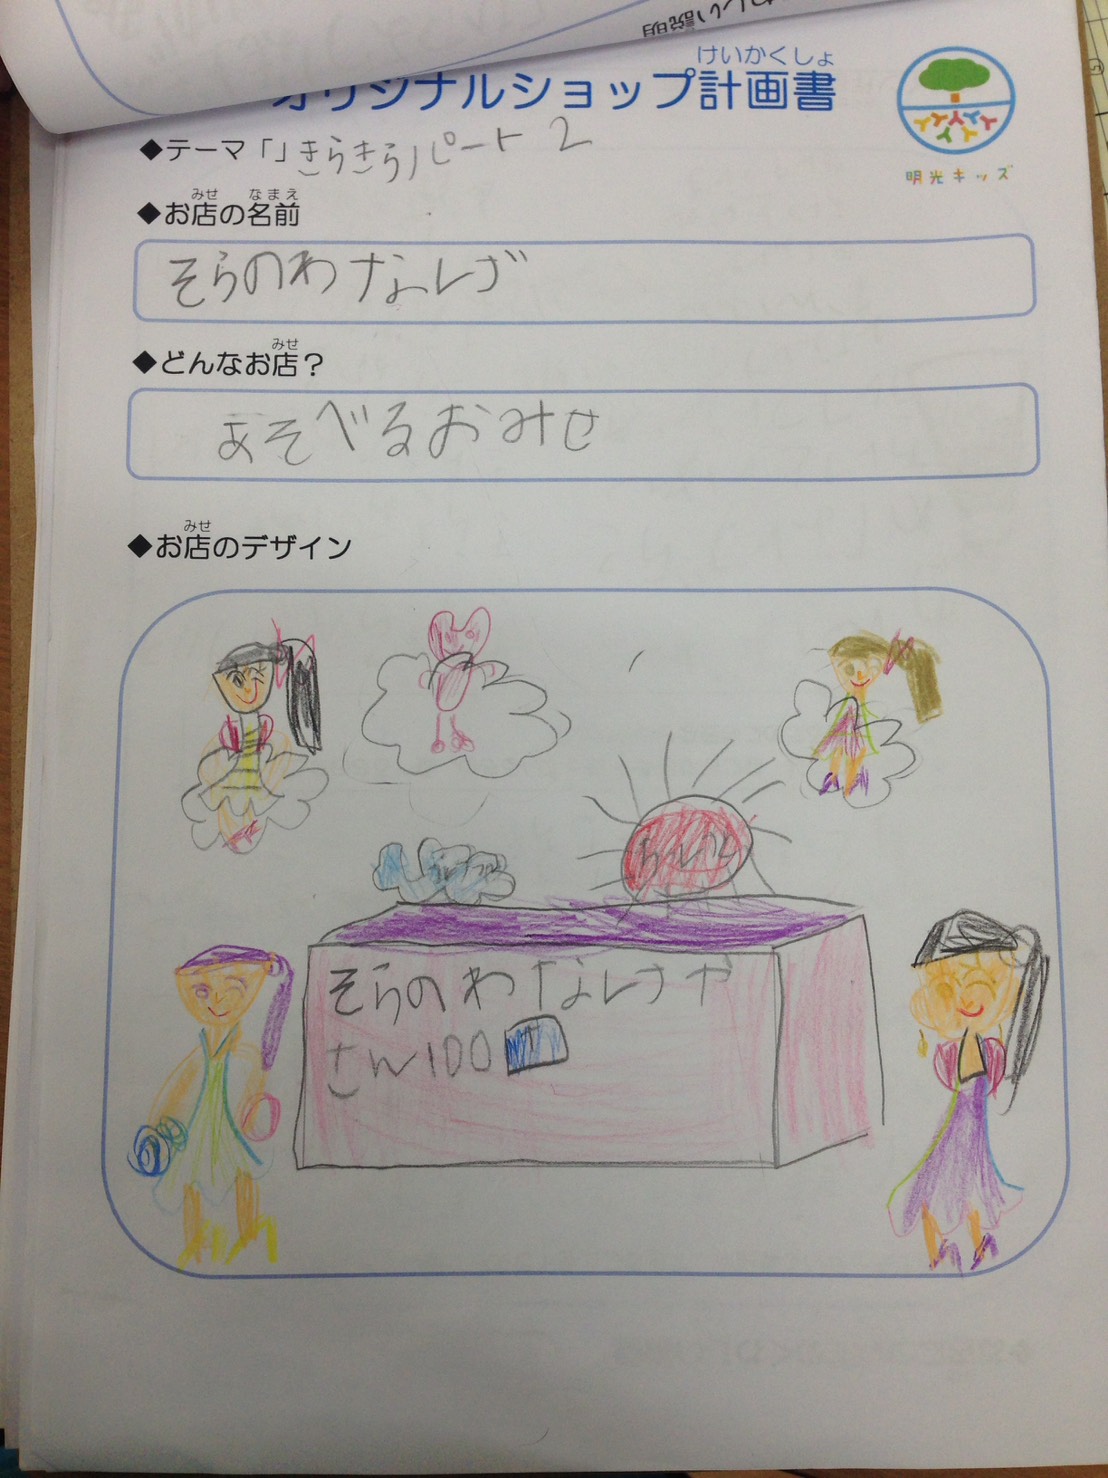 しい説明
けいかくしょ
オリジナルショップ計画書
明光キッズ
◆テーマ「」きらきらパート2
みせ なまえ
◆お店の名前
そらのわなしげ
みせ
◆どんなお店?
あそべるおみせ
みせ
◆お店のデザイン
そらのわなげや
さん100